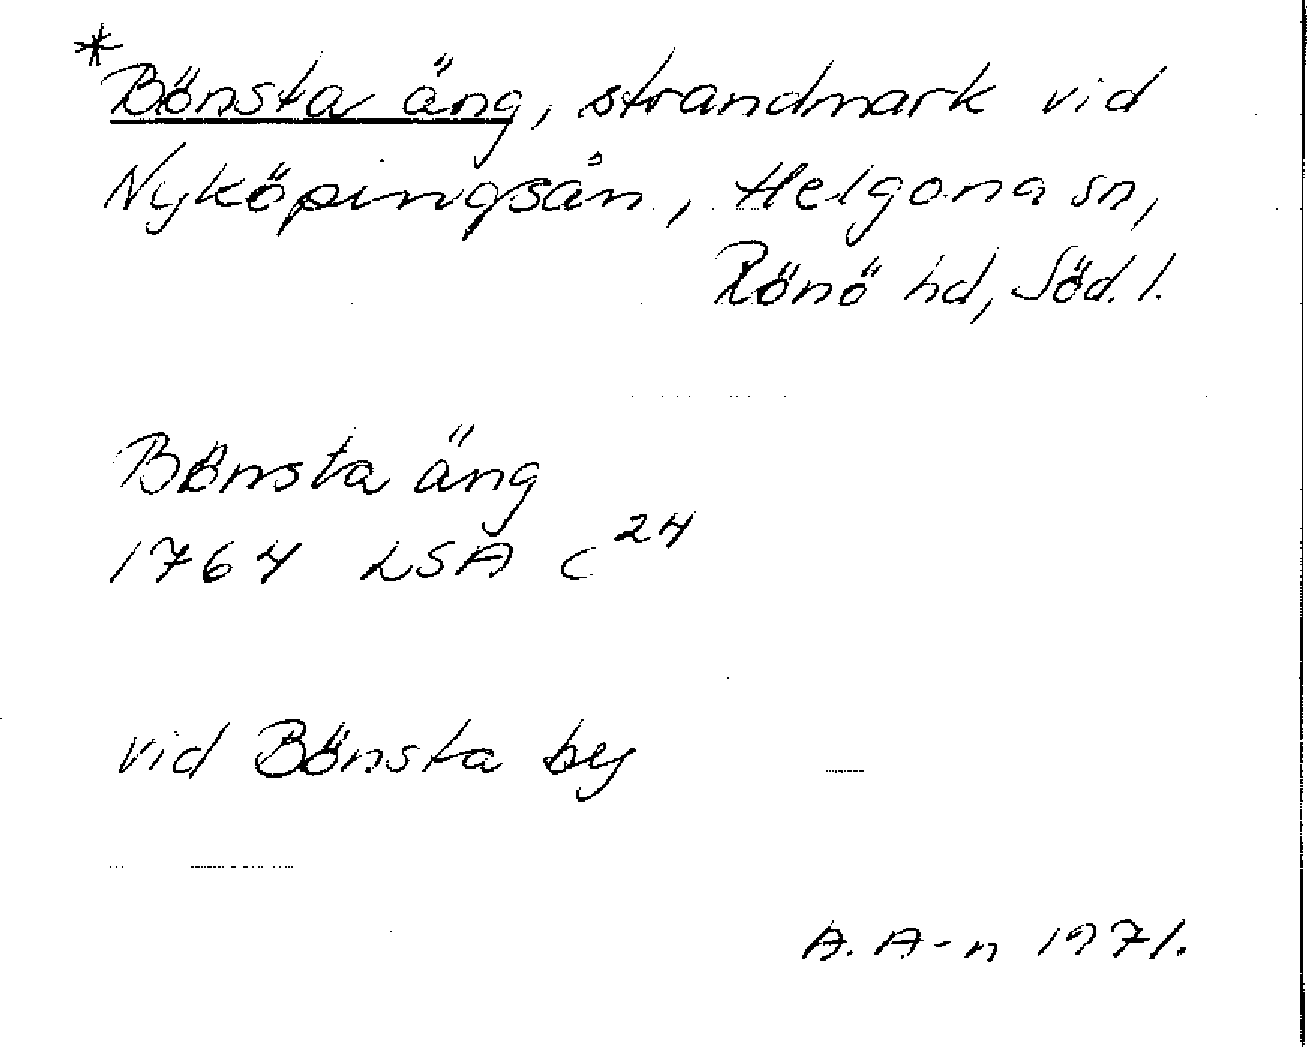 *Bönsta äng, strandmark vid
Nyköpingsån, Helgona sn,
Rönö hd, Söd. l.
Bönsta äng
1764 LSA C²⁴
vid Bönsta by
A. A-n 1971.